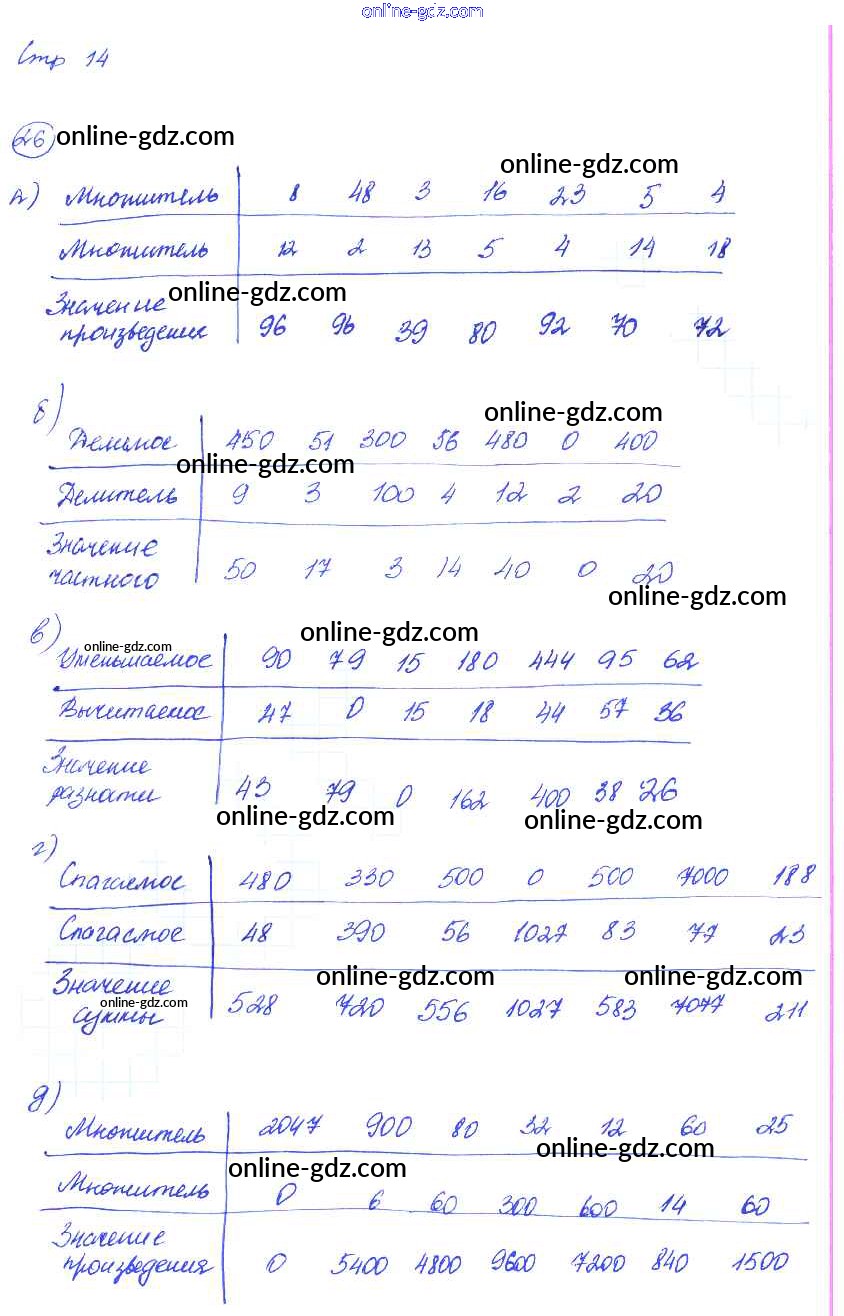 online-gdz.com
Стр 14
26 online-gdz.com
online-gdz.com
А) Множитель 8 48 3 16 23 5 4
Множитель 12 2 13 5 4 14 18
online-gdz.com
Значение
произведения 96 96 39 80 92 70 72
б)
online-gdz.com
Делимое 450 51 300 56 480 0 400
online-gdz.com
Делитель 9 3 100 4 12 2 20
Значение
частного 50 17 3 14 40 0 20
online-gdz.com
в)
online-gdz.com
online-gdz.com
Уменьшаемое 90 79 15 180 444 95 62
Вычитаемое 47 0 15 18 44 57 36
Значение
разности 43 79 0 162 400 38 26
online-gdz.com online-gdz.com
г)
Слагаемое 480 330 500 0 500 7000 188
Слагаемое 48 390 56 1027 83 77 23
online-gdz.com online-gdz.com
Значение
online-gdz.com
суммы 528 720 556 1027 583 7077 211
д)
Множитель 2047 900 80 32 12 60 25
online-gdz.com
online-gdz.com
Множитель 0 6 60 300 600 14 60
Значение
произведения 0 5400 4800 9600 7200 840 1500